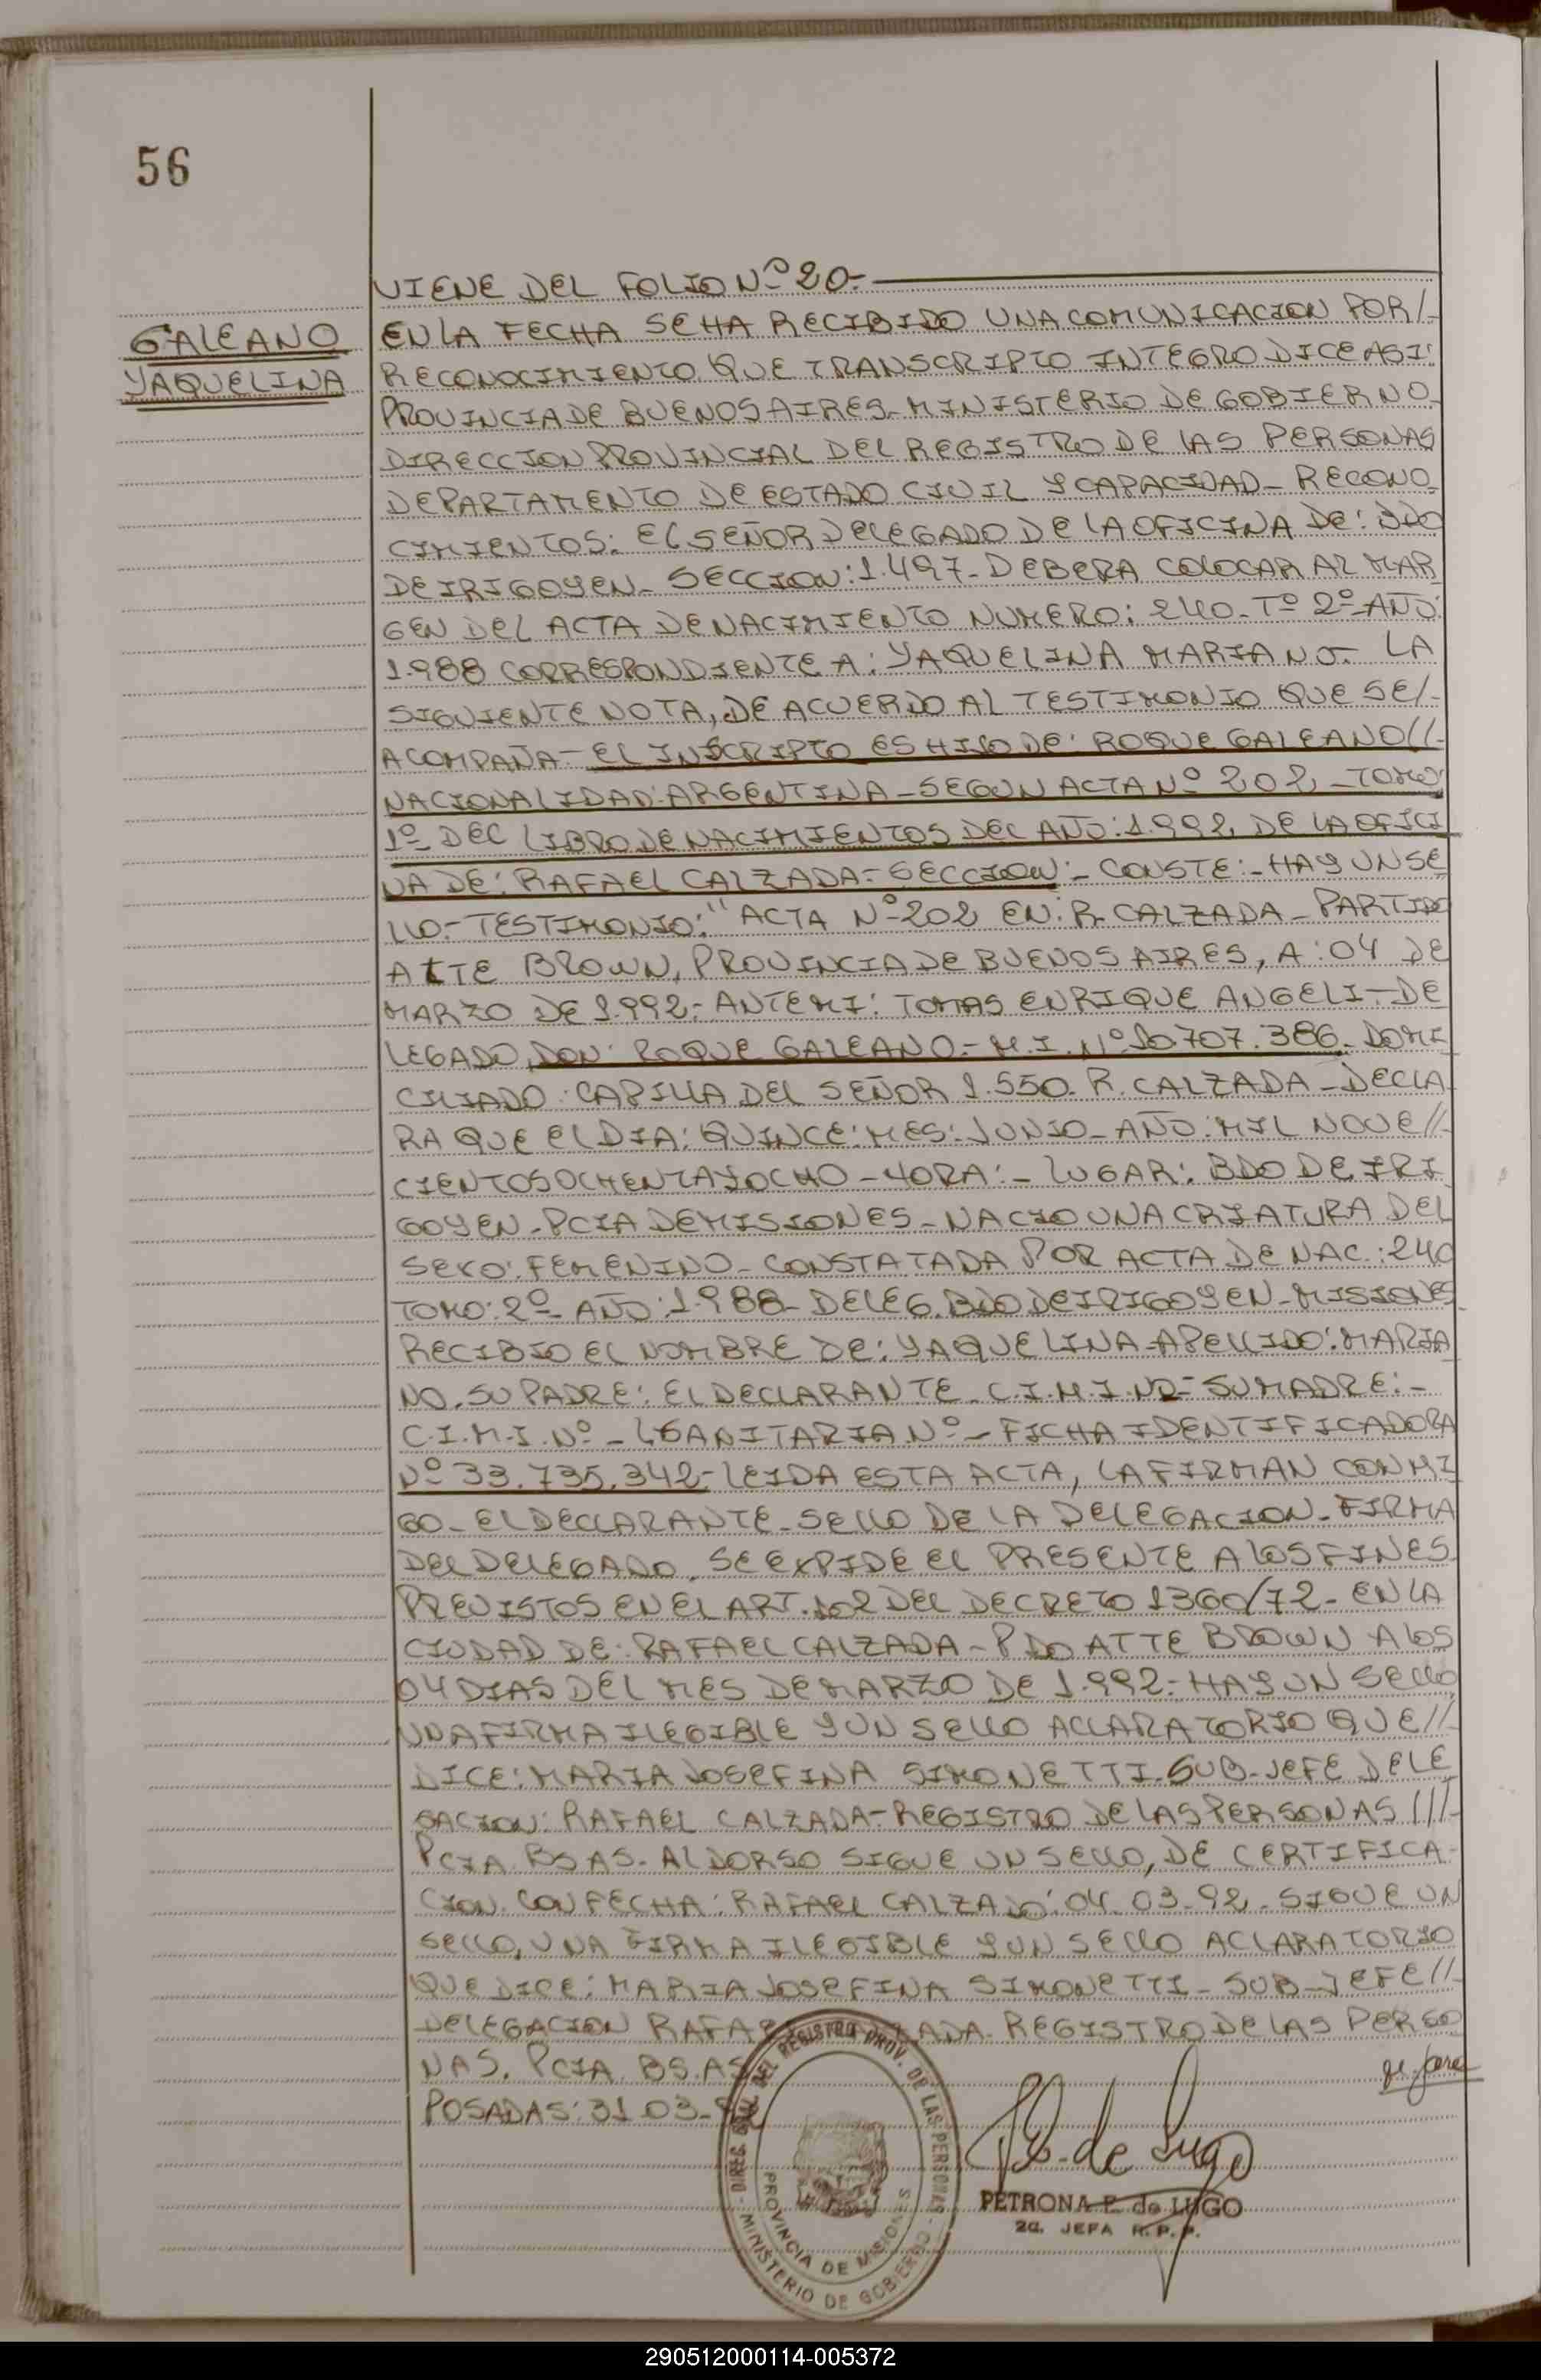 56
VIENE DEL FOLIO Nº 20.-
GALEANO
YAQUELINA
EN LA FECHA SE HA RECIBIDO UNA COMUNICACION POR/-
RECONOCIMIENTO QUE TRANSCRIPTO INTEGRO DICE ASI:
PROVINCIA DE BUENOS AIRES- MINISTERIO DE GOBIERNO-
DIRECCION PROVINCIAL DEL REGISTRO DE LAS PERSONAS
DEPARTAMENTO DE ESTADO CIVIL Y CAPACIDAD- RECONO-
CIMIENTOS: EL SEÑOR DELEGADO DE LA OFICINA DE: BDO
DE IRIGOYEN- SECCION: 1.497- DEBERA COLOCAR AL MAR
GEN DEL ACTA DE NACIMIENTO NUMERO: 240- Tº 2º- AÑO:
1.988 CORRESPONDIENTE A: YAQUELINA MARIANO.- LA
SIGUIENTE NOTA, DE ACUERDO AL TESTIMONIO QUE SE/-
ACOMPAÑA- EL INSCRIPTO ES HIJO DE: ROQUE GALEANO//-
NACIONALIDAD: ARGENTINA- SEGUN ACTA Nº 202- TOMO:
1º- DEL LIBRO DE NACIMIENTOS DEL AÑO: 1.992, DE LA OFICI
NA DE: RAFAEL CALZADA- SECCION:- CONSTE:- HAY UN SE
LLO- TESTIMONIO: "ACTA Nº 202 EN: R. CALZADA- PARTIDO
ALTE BROWN, PROVINCIA DE BUENOS AIRES, A: 04 DE
MARZO DE 1.992- ANTE MI: TOMAS ENRIQUE ANGELI- DE
LEGADO, DON: ROQUE GALEANO.- M.I. Nº 10707.386. DOMI
CILIADO: CAPILLA DEL SEÑOR 1.550. R. CALZADA- DECLA-
RA QUE EL DIA: QUINCE: MES: JUNIO- AÑO: MIL NOVE//-
CIENTOS OCHENTA Y OCHO- HORA:- LUGAR: BDO DE IRI
GOYEN- PCIA DE MISIONES- NACIO UNA CRIATURA DEL
SEXO: FEMENINO- CONSTATADA POR ACTA DE NAC.: 240
TOMO: 2º- AÑO: 1.988- DELEG. BDO DE IRIGOYEN- MISIONES
RECIBIO EL NOMBRE DE: YAQUELINA- APELLIDO: MARIA
NO. SU PADRE: EL DECLARANTE- C.I.M.I. Nº- SU MADRE:-
C.I.M.I. Nº- SANITARIA Nº- FICHA IDENTIFICADORA
Nº 33.735.342- LEIDA ESTA ACTA, LA FIRMAN CONMI
GO- EL DECLARANTE- SELLO DE LA DELEGACION- FIRMA
DEL DELEGADO. SE EXPIDE EL PRESENTE A LOS FINES
PREVISTOS EN EL ART. 102 DEL DECRETO 1360/72- EN LA
CIUDAD DE: RAFAEL CALZADA- PDO ATTE BROWN A LOS
04 DIAS DEL MES DE MARZO DE 1.992- HAY UN SELLO
UNA FIRMA ILEGIBLE Y UN SELLO ACLARATORIO QUE//-
DICE: MARIA JOSEFINA SIMONETTI- SUB-JEFE DELE
GACION: RAFAEL CALZADA- REGISTRO DE LAS PERSONAS///-
PCIA BS AS- AL DORSO SIGUE UN SELLO, DE CERTIFICA-
CION. CON FECHA: RAFAEL CALZADO: 04-03-92- SIGUE UN
SELLO, UNA FIRMA ILEGIBLE Y UN SELLO ACLARATORIO
QUE DICE: MARIA JOSEFINA SIMONETTI- SUB-JEFE//-
DELEGACION RAFAEL CALZADA- REGISTRO DE LAS PERSO
NAS. PCIA. BS.AS
POSADAS: 31 03-92
DIREC. GRAL. DEL REGISTRO PROV. DE LAS PERSONAS - MINISTERIO DE GOBIERNO -
PROVINCIA DE MISIONES
de Lugo
PETRONA E. de LUGO
2a. JEFA R.P.P.
290512000114-005372